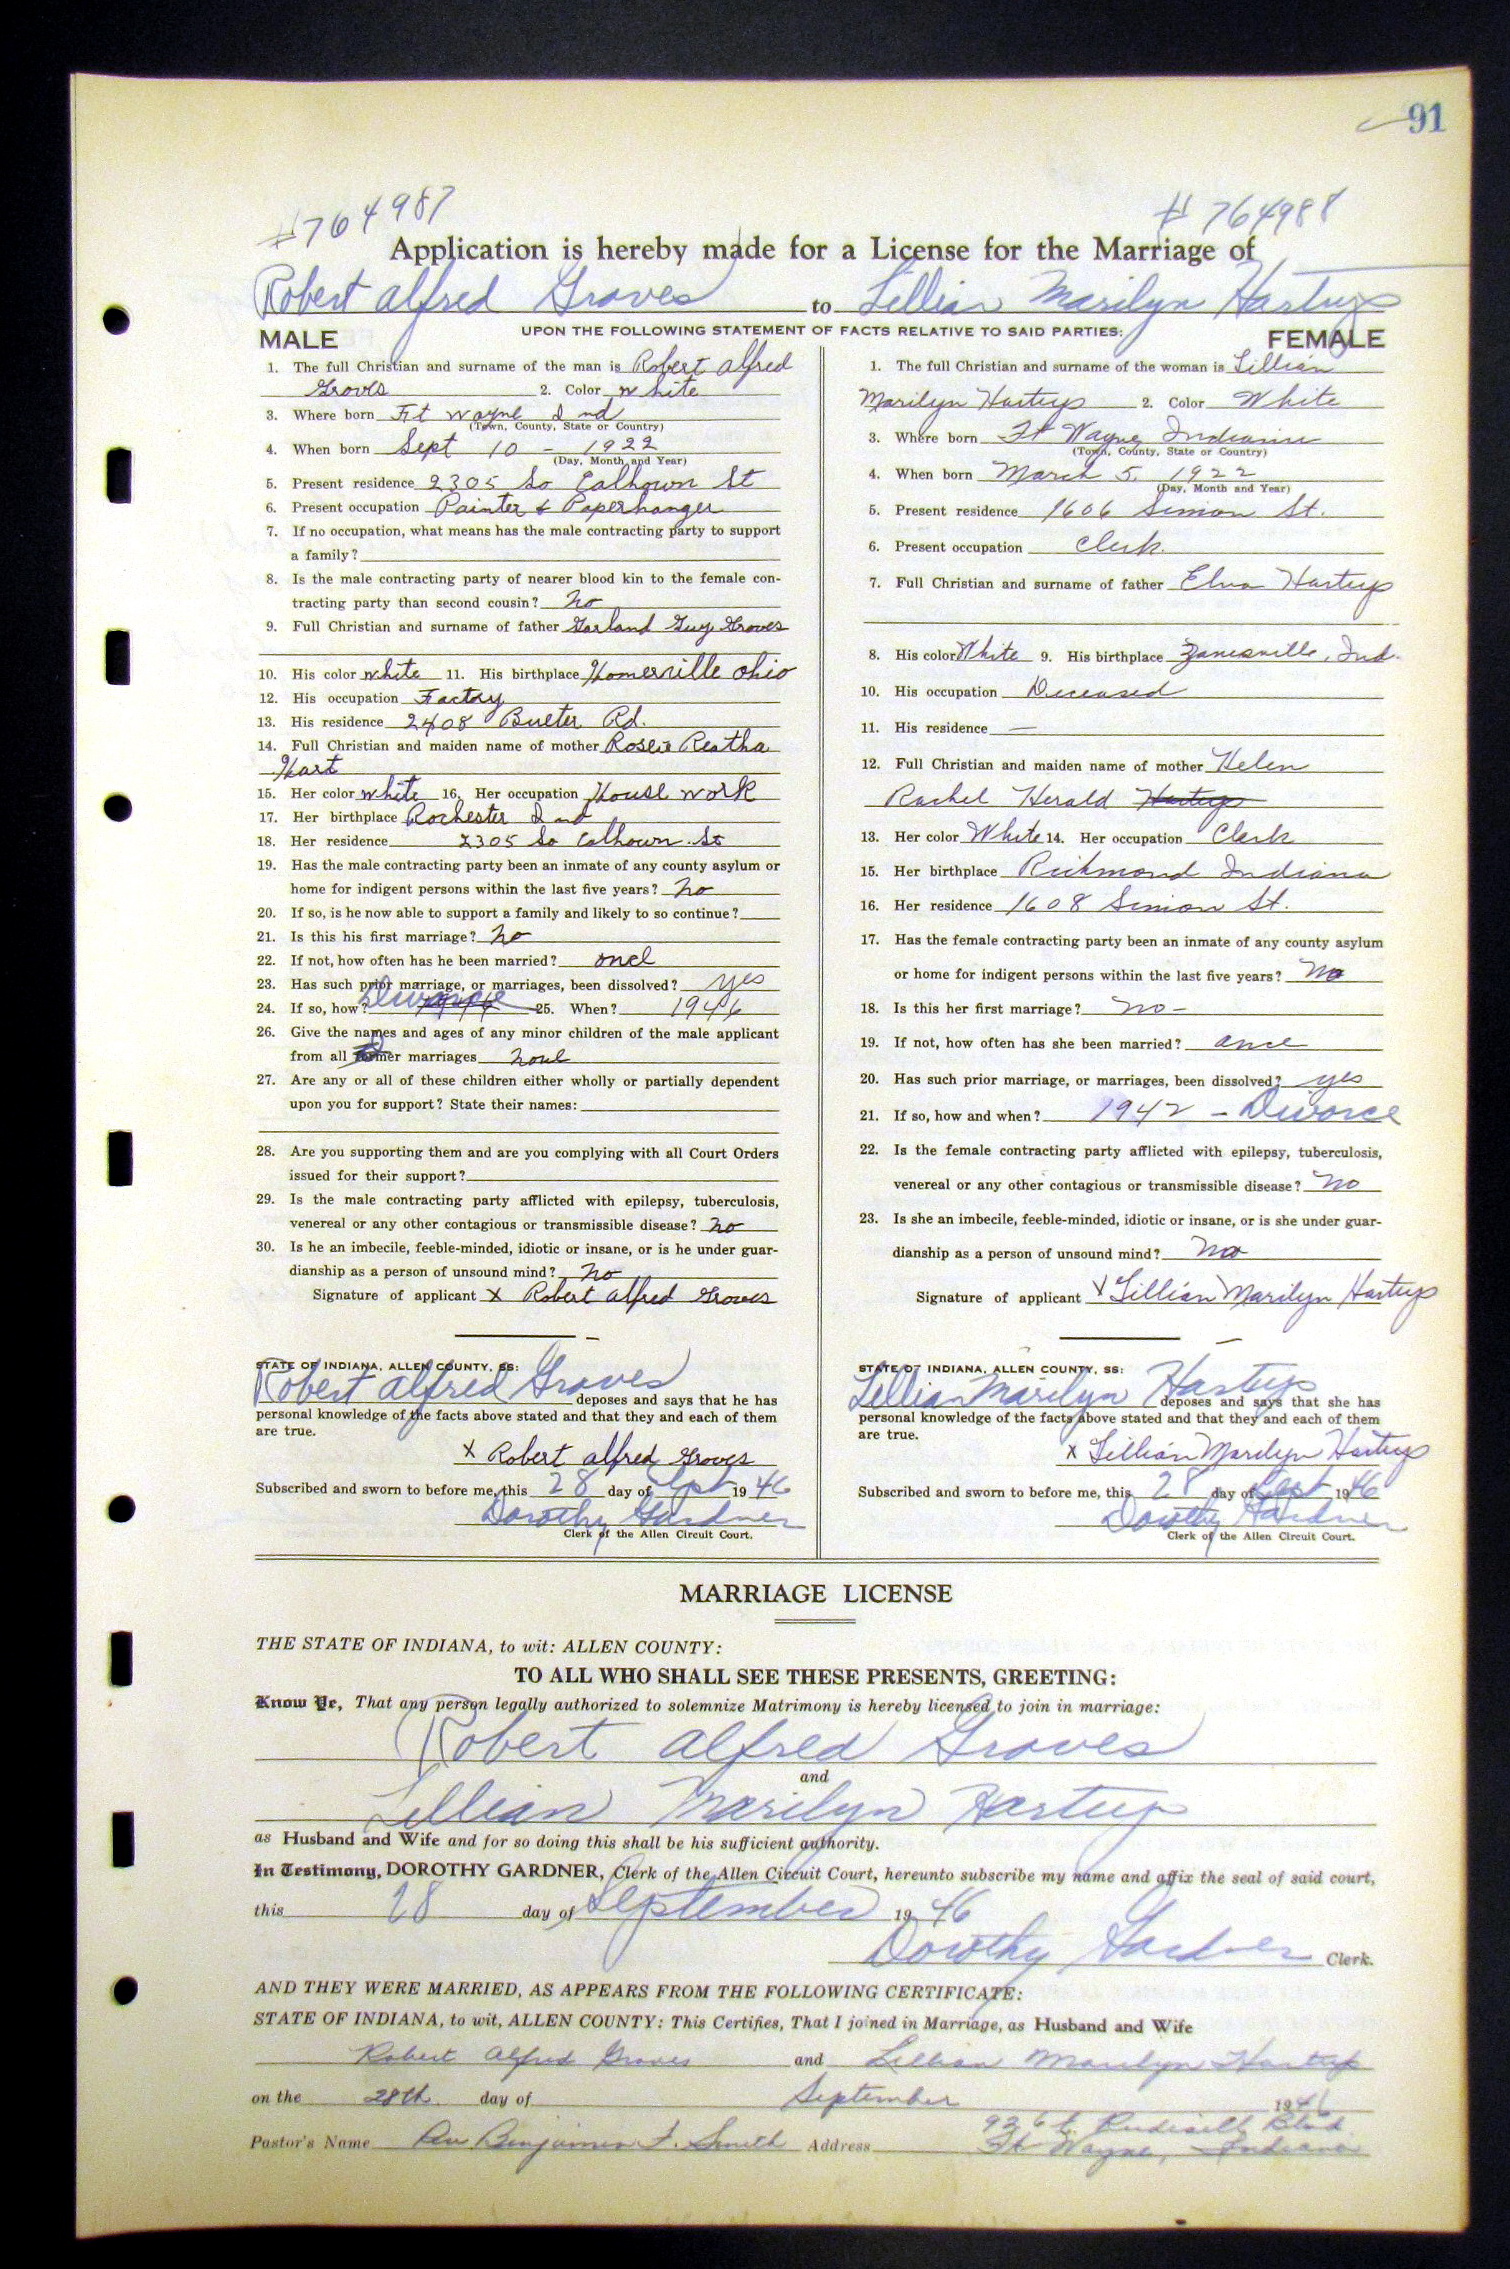 91
#764987
#764988
Application is hereby made for a License for the Marriage of
Robert Alfred Groves to Lillian Marilyn Hartup
UPON THE FOLLOWING STATEMENT OF FACTS RELATIVE TO SAID PARTIES:
MALE
1. The full Christian and surname of the man is Robert Alfred
Groves 2. Color white
3. Where born Ft Wayne Ind
(Town, County, State or Country)
4. When born Sept 10 - 1922
(Day, Month and Year)
5. Present residence 2305 So Calhown St
6. Present occupation Painter & Paperhanger
7. If no occupation, what means has the male contracting party to support
a family?
8. Is the male contracting party of nearer blood kin to the female con-
tracting party than second cousin? No
9. Full Christian and surname of father Garland Guy Groves
10. His color white 11. His birthplace Homerville Ohio
12. His occupation Factory
13. His residence 2408 Bueter Rd.
14. Full Christian and maiden name of mother Rosere Reatha
Hart
15. Her color white 16. Her occupation House work
17. Her birthplace Rochester Ind
18. Her residence 2305 So Calhown St
19. Has the male contracting party been an inmate of any county asylum or
home for indigent persons within the last five years? No
20. If so, is he now able to support a family and likely to so continue?
21. Is this his first marriage? No
22. If not, how often has he been married? once
23. Has such prior marriage, or marriages, been dissolved? yes
24. If so, how? Divorce 25. When? 1946
26. Give the names and ages of any minor children of the male applicant
from all former marriages none
27. Are any or all of these children either wholly or partially dependent
upon you for support? State their names:
28. Are you supporting them and are you complying with all Court Orders
issued for their support?
29. Is the male contracting party afflicted with epilepsy, tuberculosis,
venereal or any other contagious or transmissible disease? No
30. Is he an imbecile, feeble-minded, idiotic or insane, or is he under guar-
dianship as a person of unsound mind? No
Signature of applicant X Robert Alfred Groves
STATE OF INDIANA, ALLEN COUNTY, SS:
Robert Alfred Groves deposes and says that he has
personal knowledge of the facts above stated and that they and each of them
are true.
X Robert Alfred Groves
Subscribed and sworn to before me, this 28 day of Sept 1946
Dorothy Gardner
Clerk of the Allen Circuit Court.
FEMALE
1. The full Christian and surname of the woman is Lillian
Marilyn Hartup 2. Color White
3. Where born Ft Wayne, Indiana
(Town, County, State or Country)
4. When born March 5, 1922
(Day, Month and Year)
5. Present residence 1606 Simon St.
6. Present occupation Clerk
7. Full Christian and surname of father Elva Hartup
8. His color White 9. His birthplace Zanesville, Ind.
10. His occupation Deceased
11. His residence —
12. Full Christian and maiden name of mother Helen
Rachel Herald Hartup
13. Her color White 14. Her occupation Clerk
15. Her birthplace Richmond Indiana
16. Her residence 1608 Simon St.
17. Has the female contracting party been an inmate of any county asylum
or home for indigent persons within the last five years? No
18. Is this her first marriage? No -
19. If not, how often has she been married? once
20. Has such prior marriage, or marriages, been dissolved? yes
21. If so, how and when? 1942 - Divorce
22. Is the female contracting party afflicted with epilepsy, tuberculosis,
venereal or any other contagious or transmissible disease? No
23. Is she an imbecile, feeble-minded, idiotic or insane, or is she under guar-
dianship as a person of unsound mind? No
Signature of applicant X Lillian Marilyn Hartup
STATE OF INDIANA, ALLEN COUNTY, SS:
Lillian Marilyn Hartup deposes and says that she has
personal knowledge of the facts above stated and that they and each of them
are true.
X Lillian Marilyn Hartup
Subscribed and sworn to before me, this 28 day of Sept 1946
Dorothy Gardner
Clerk of the Allen Circuit Court.
MARRIAGE LICENSE
THE STATE OF INDIANA, to wit: ALLEN COUNTY:
TO ALL WHO SHALL SEE THESE PRESENTS, GREETING:
Know Ye, That any person legally authorized to solemnize Matrimony is hereby licensed to join in marriage:
Robert Alfred Groves
and
Lillian Marilyn Hartup
as Husband and Wife and for so doing this shall be his sufficient authority.
In Testimony, DOROTHY GARDNER, Clerk of the Allen Circuit Court, hereunto subscribe my name and affix the seal of said court,
this 28 day of September 1946
Dorothy Gardner Clerk.
AND THEY WERE MARRIED, AS APPEARS FROM THE FOLLOWING CERTIFICATE:
STATE OF INDIANA, to wit, ALLEN COUNTY: This Certifies, That I joined in Marriage, as Husband and Wife
Robert Alfred Groves and Lillian Marilyn Hartup
on the 28th day of September 1946
926 E. Rudisill Blvd.
Pastor's Name Rev Benjamin F. Smith Address Ft Wayne, Indiana